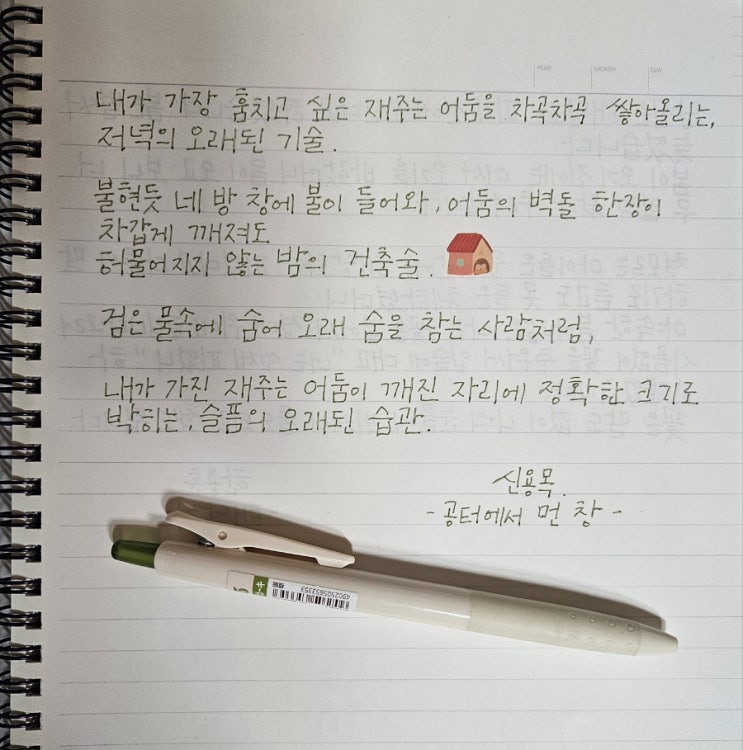 YEAR MONTH DAY
내가 가장 훔치고 싶은 재주는 어둠을 차곡차곡 쌓아올리는,
저녁의 오래된 기술.
불현듯 네 방 창에 불이 들어와, 어둠의 벽돌 한장이
차갑게 깨져도
허물어지지 않는 밤의 건축술.
검은 물속에 숨어 오래 숨을 참는 사람처럼,
내가 가진 재주는 어둠이 깨진 자리에 정확한 크기로
박히는, 슬픔의 오래된 습관.
신용목.
- 공터에서 먼 창 -
4902505653353